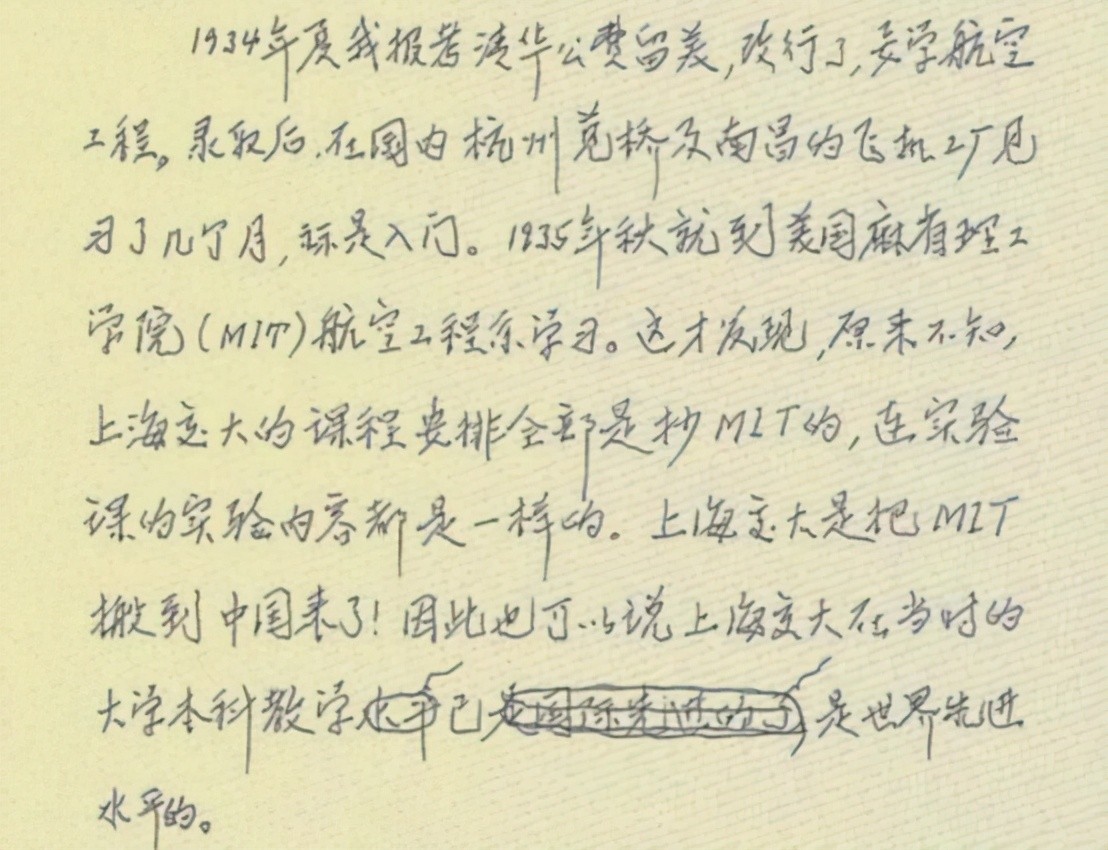 1934年夏我报考清华公费留美,改行了,要学航空
工程。录取后,在国内杭州笕桥及南昌的飞机工厂见
习了几个月,算是入门。1935年秋就到美国麻省理工
学院(MIT)航空工程系学习。这才发现,原来不知,
上海交大的课程安排全部是抄MIT的,连实验
课的实验内容都是一样的。上海交大是把MIT
搬到中国来了!因此也可以说上海交大在当时的
大学本科教学水平已是国际先进的了,是世界先进
水平的。